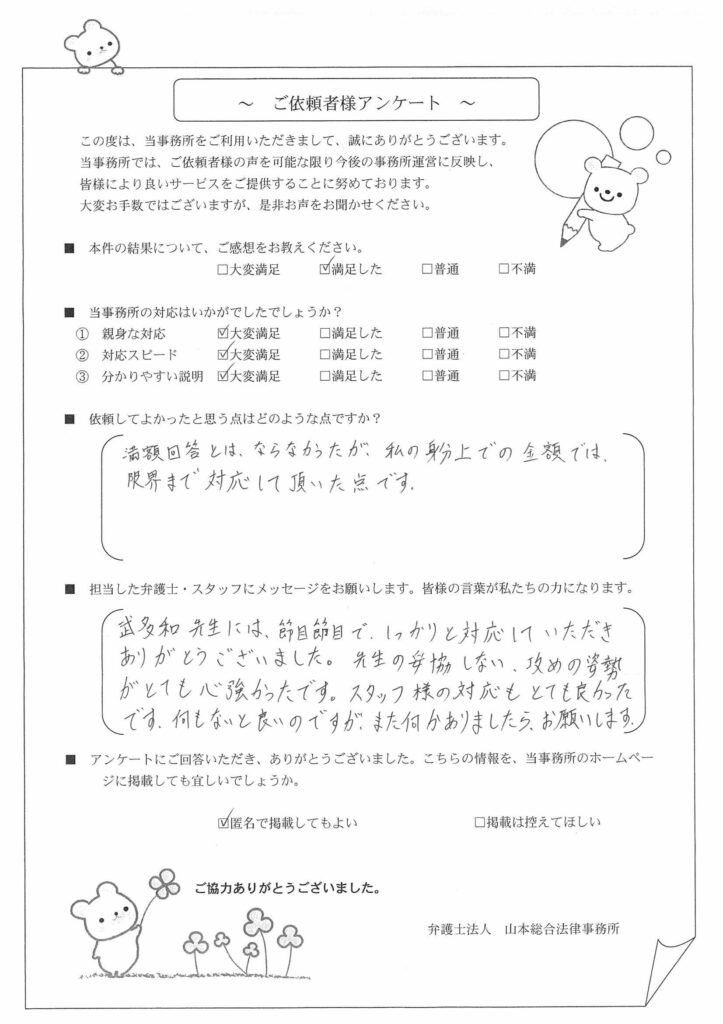 ～ ご依頼者様アンケート ～
この度は、当事務所をご利用いただきまして、誠にありがとうございます。
当事務所では、ご依頼者様の声を可能な限り今後の事務所運営に反映し、
皆様により良いサービスをご提供することに努めております。
大変お手数ではございますが、是非お声をお聞かせください。
■ 本件の結果について、ご感想をお教えください。
□大変満足 ☑満足した □普通 □不満
■ 当事務所の対応はいかがでしたでしょうか？
① 親身な対応 ☑大変満足 □満足した □普通 □不満
② 対応スピード ☑大変満足 □満足した □普通 □不満
③ 分かりやすい説明 ☑大変満足 □満足した □普通 □不満
■ 依頼してよかったと思う点はどのような点ですか？
満額回答とは、ならなかったが、私の身分上での金額では、
限界まで対応して頂いた点です。
■ 担当した弁護士・スタッフにメッセージをお願いします。皆様の言葉が私たちの力になります。
武多和先生には、節目節目で、しっかりと対応していただき
ありがとうございました。先生の妥協しない、攻めの姿勢
がとても心強かったです。スタッフ様の対応もとても良かった
です。何もないと良いのですが、また何かありましたら、お願いします。
■ アンケートにご回答いただき、ありがとうございました。こちらの情報を、当事務所のホームペー
ジに掲載しても宜しいでしょうか。
☑匿名で掲載してもよい □掲載は控えてほしい
ご協力ありがとうございました。
弁護士法人 山本総合法律事務所